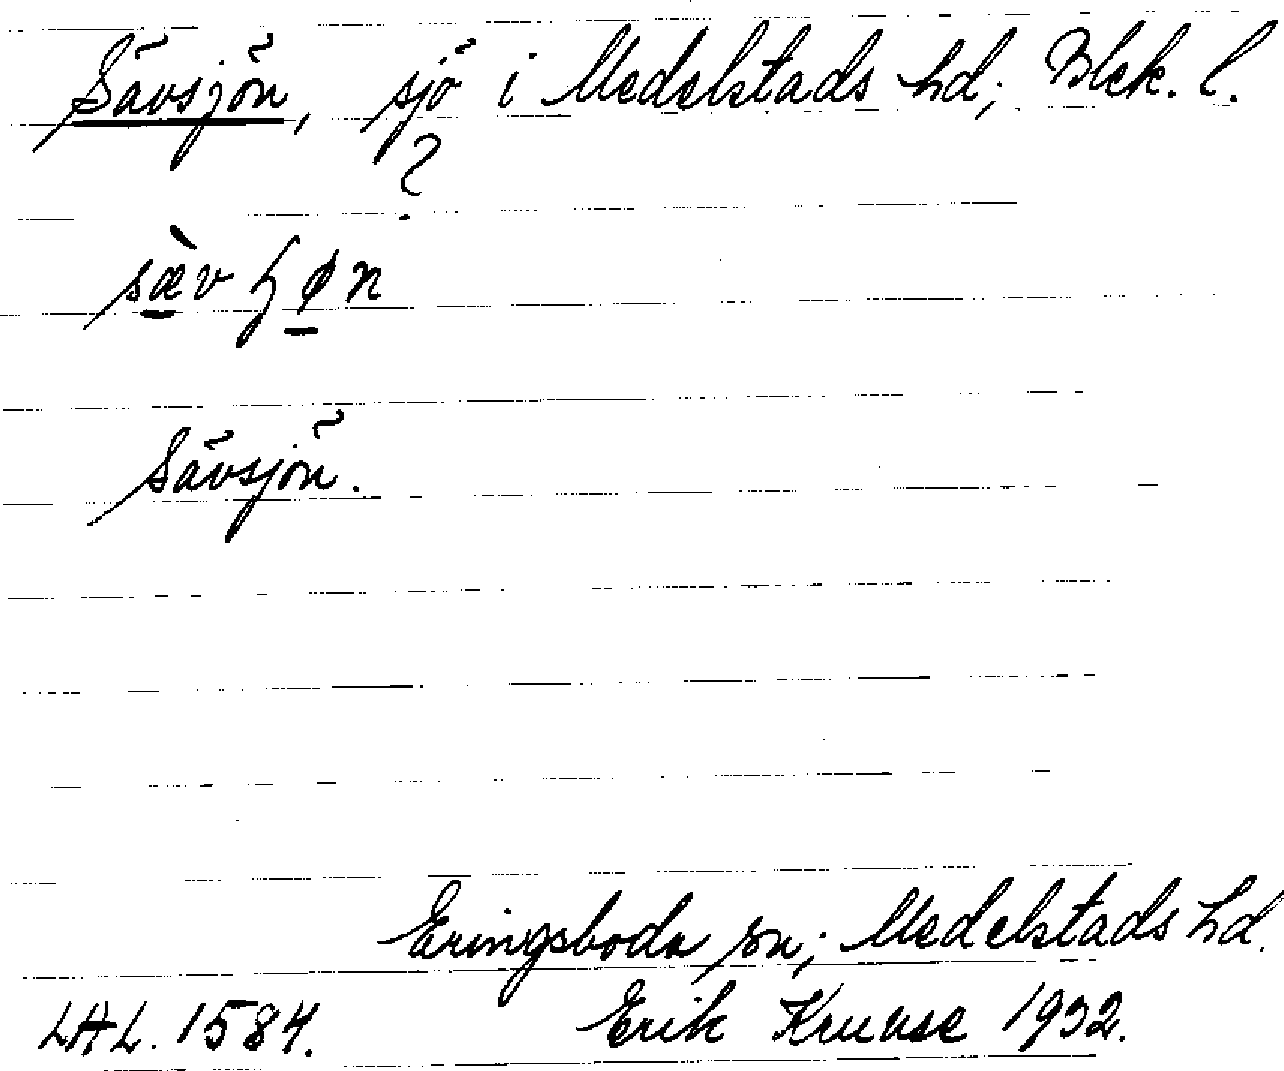 Sävsjön, sjö i Medelstads hd; Blek. l.
?
sæ̀vɧøn
Sävsjön.
Eringsboda sn; Medelstads hd.
LAL. 1584. Erik Kruuse 1932.